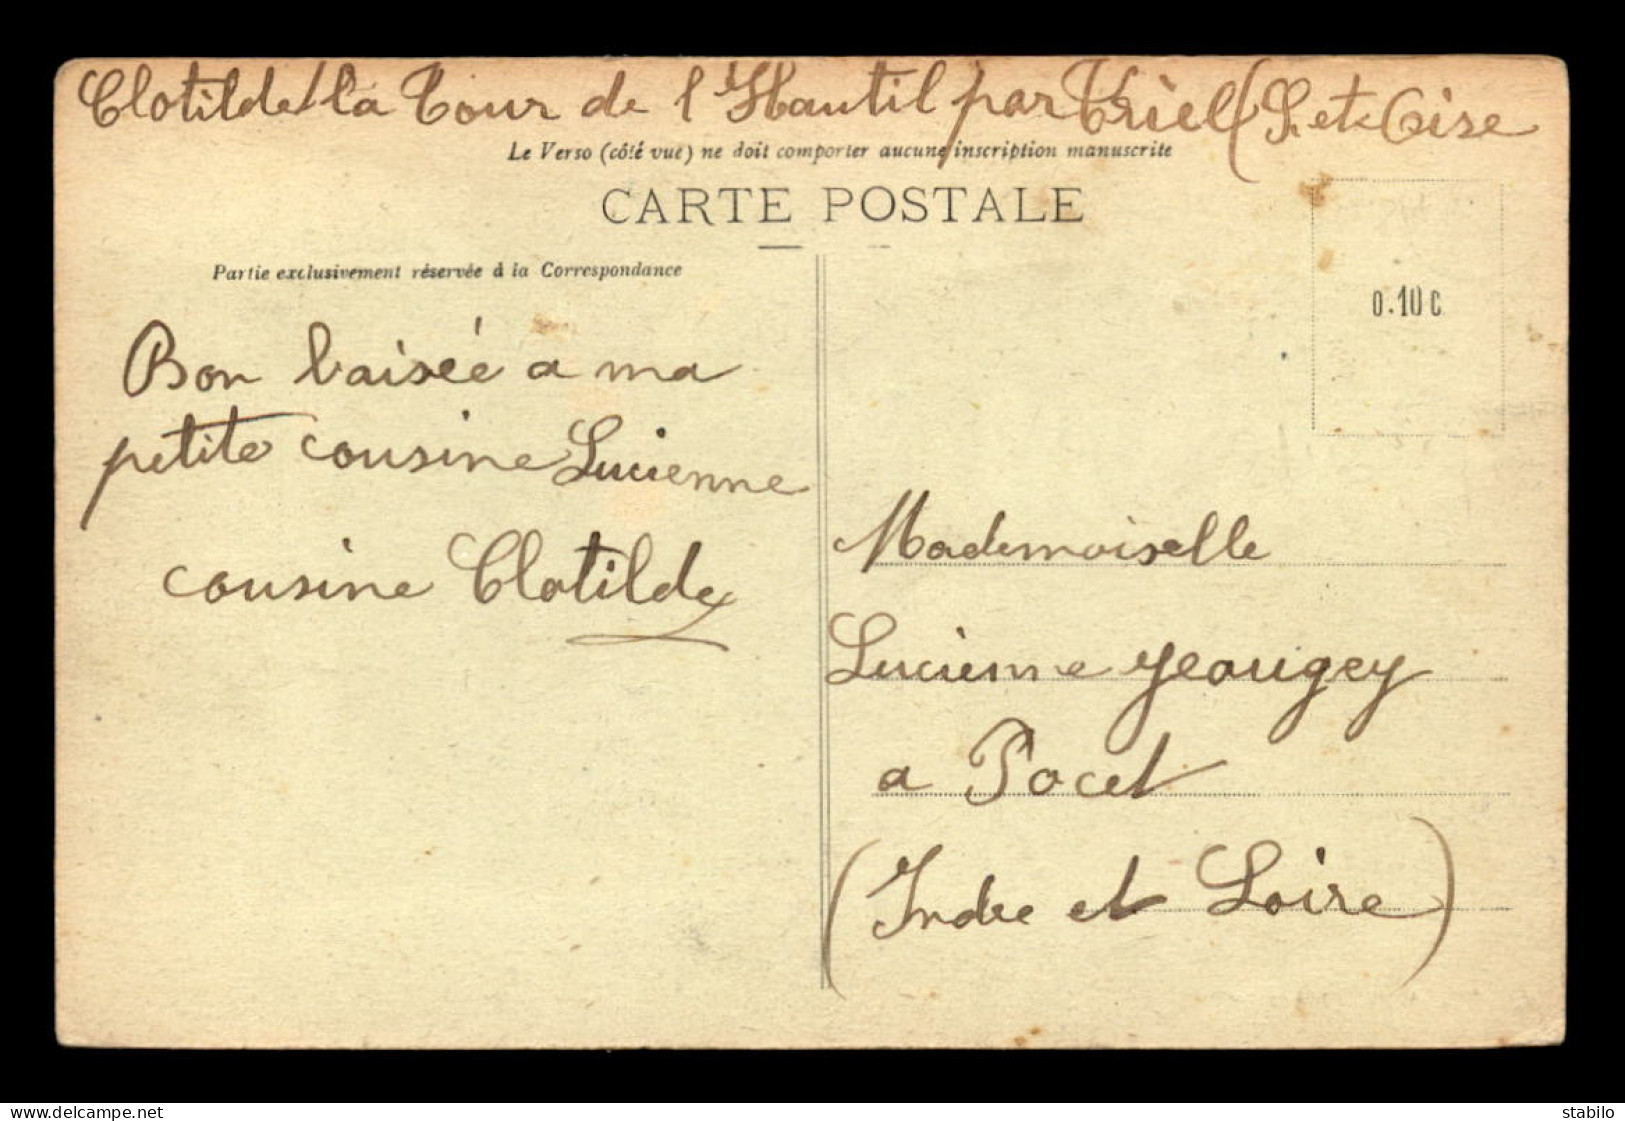 Clotilde la Tour de l'Hautil par Triel (S. et Oise
Le Verso (côté vue) ne doit comporter aucune inscription manuscrite
CARTE POSTALE
Partie exclusivement réservée à la Correspondance
0.10 C
Bon baisée a ma
petite cousine Lucienne
cousine Clotilde
Mademoiselle
Lucienne Jeaugey
a Pocet
(Indre et Loire)
www.delcampe.net
stabilo